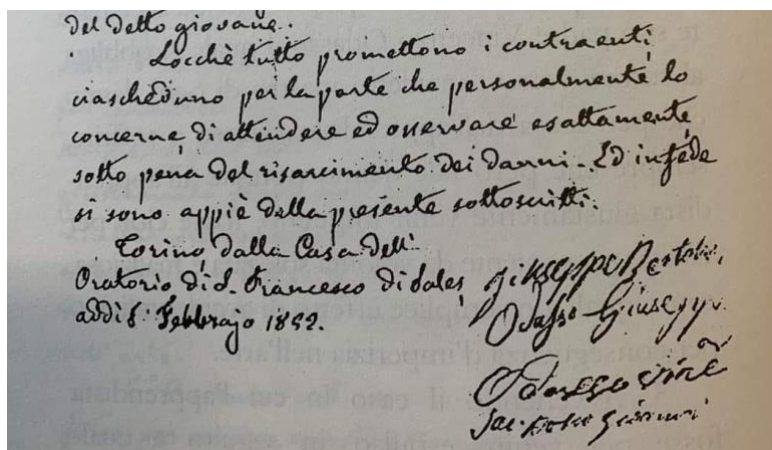 del detto giovane.
Locchè tutto promettono i contraenti
ciascheduno per la parte che personalmente lo
concerne di attendere ed osservare esattamente
sotto pena del risarcimento dei danni. Ed in fede
si sono appiè della presente sottoscritti.
Torino dalla Casa dell'
Oratorio di S. Francesco di Sales
addi 8 Febbrajo 1852.
Giuseppe Bertolino
Odasso Giuseppe
Odasso
Sac. Bosco Giovanni